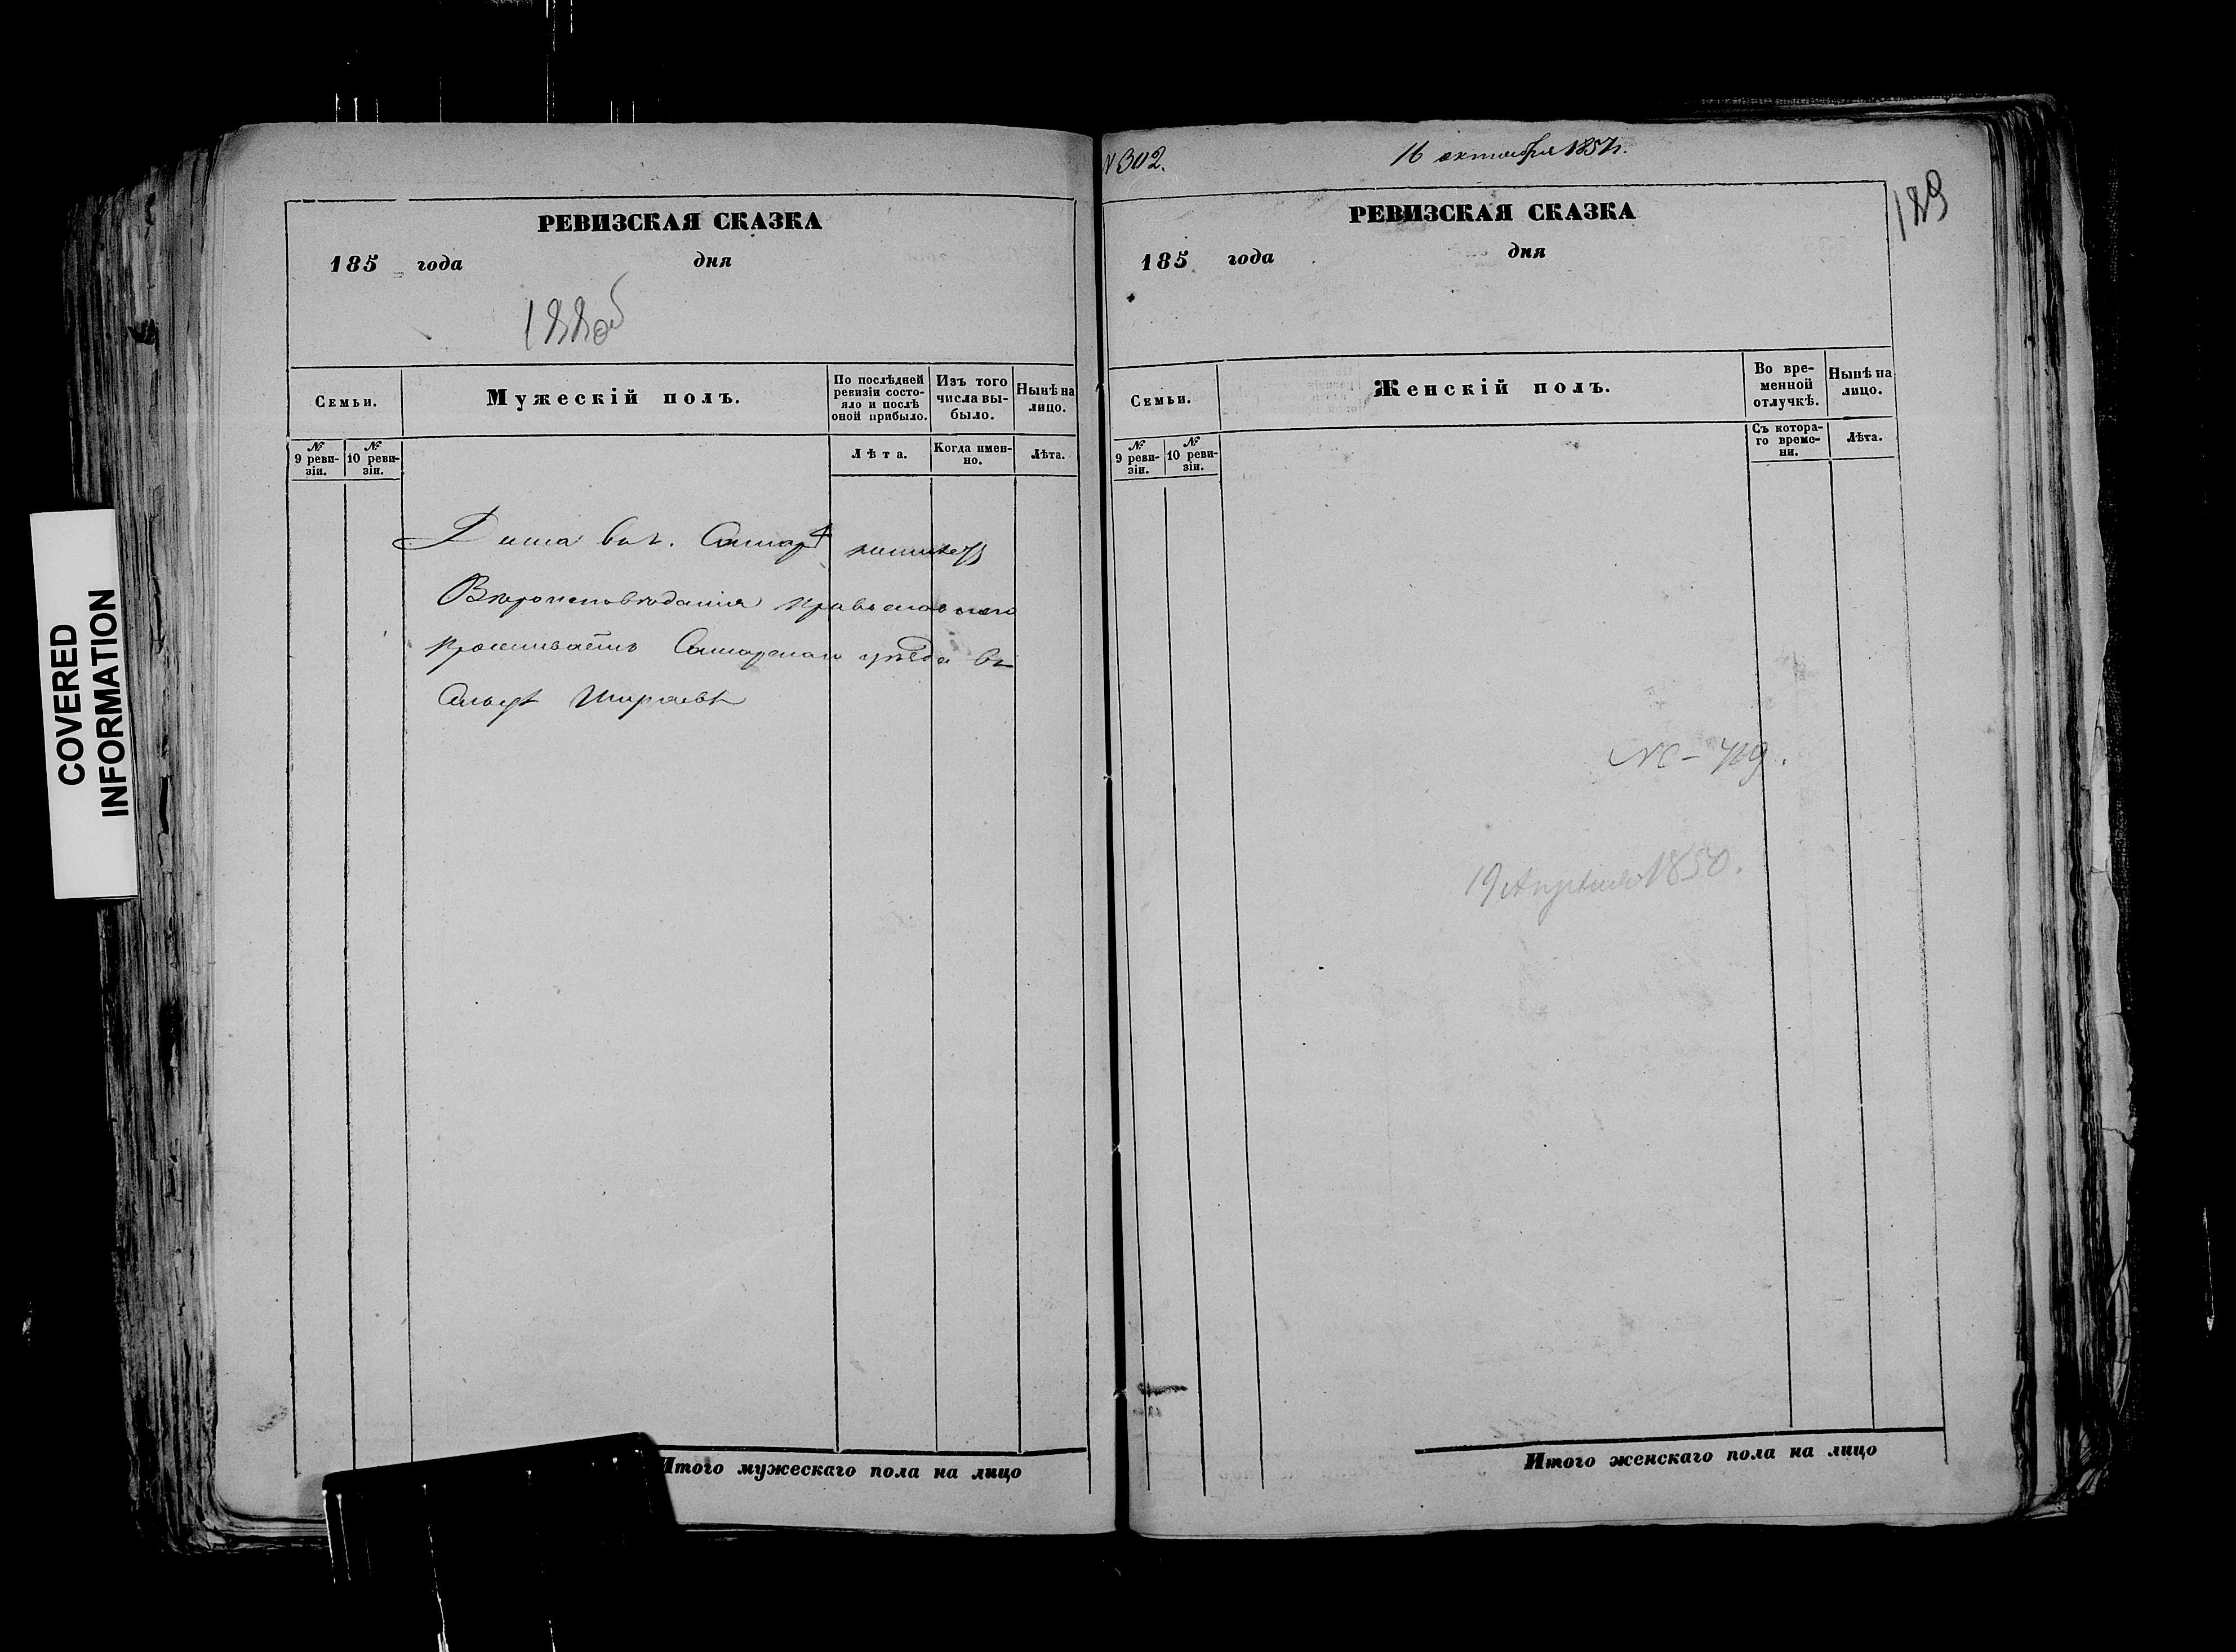 COVERED
INFORMATION
РЕВИЗСКАЯ СКАЗКА
185 года дня
188об
Семьи.
Мужескій полъ.
По послѣдней ревизіи состо-
яло и послѣ
оной прибыло.
Изъ того
числа вы-
было.
Нынѣ на
лицо.
№
9 реви-
зіи.
№
10 реви-
зіи.
Лѣта.
Когда имен-
но.
Лѣта.
Дома въ г. Самарѣ
Вѣроисповѣданія православнаго
проживаетъ Самарскаго уѣзда въ
Сельцѣ Ширяевѣ
Итого мужескаго пола на лицо
№ 302.
16 октября 1857 г.
189
РЕВИЗСКАЯ СКАЗКА
185 года дня
Семьи.
Женскій полъ.
Во вре-
менной
отлучкѣ.
Нынѣ на
лицо.
№
9 реви-
зіи.
№
10 реви-
зіи.
Съ котора-
го време-
ни.
Лѣта.
19 Апрѣля 1850.
Итого женскаго пола на лицо